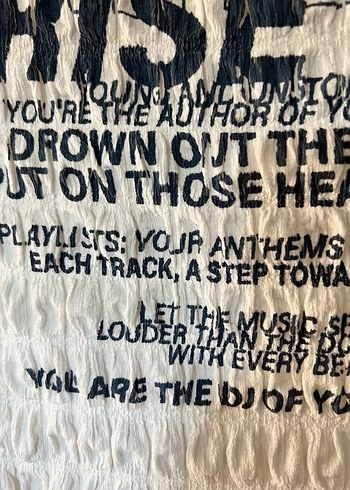 YOUNG AND UNSTO
YOU'RE THE AUTHOR OF YO
DROWN OUT THE
PUT ON THOSE HEA
PLAYLISTS: YOUR ANTHEMS
EACH TRACK, A STEP TOWA
LET THE MUSIC SE
LOUDER THAN THE DO
WITH EVERY BEA
YOU ARE THE DJ OF YO